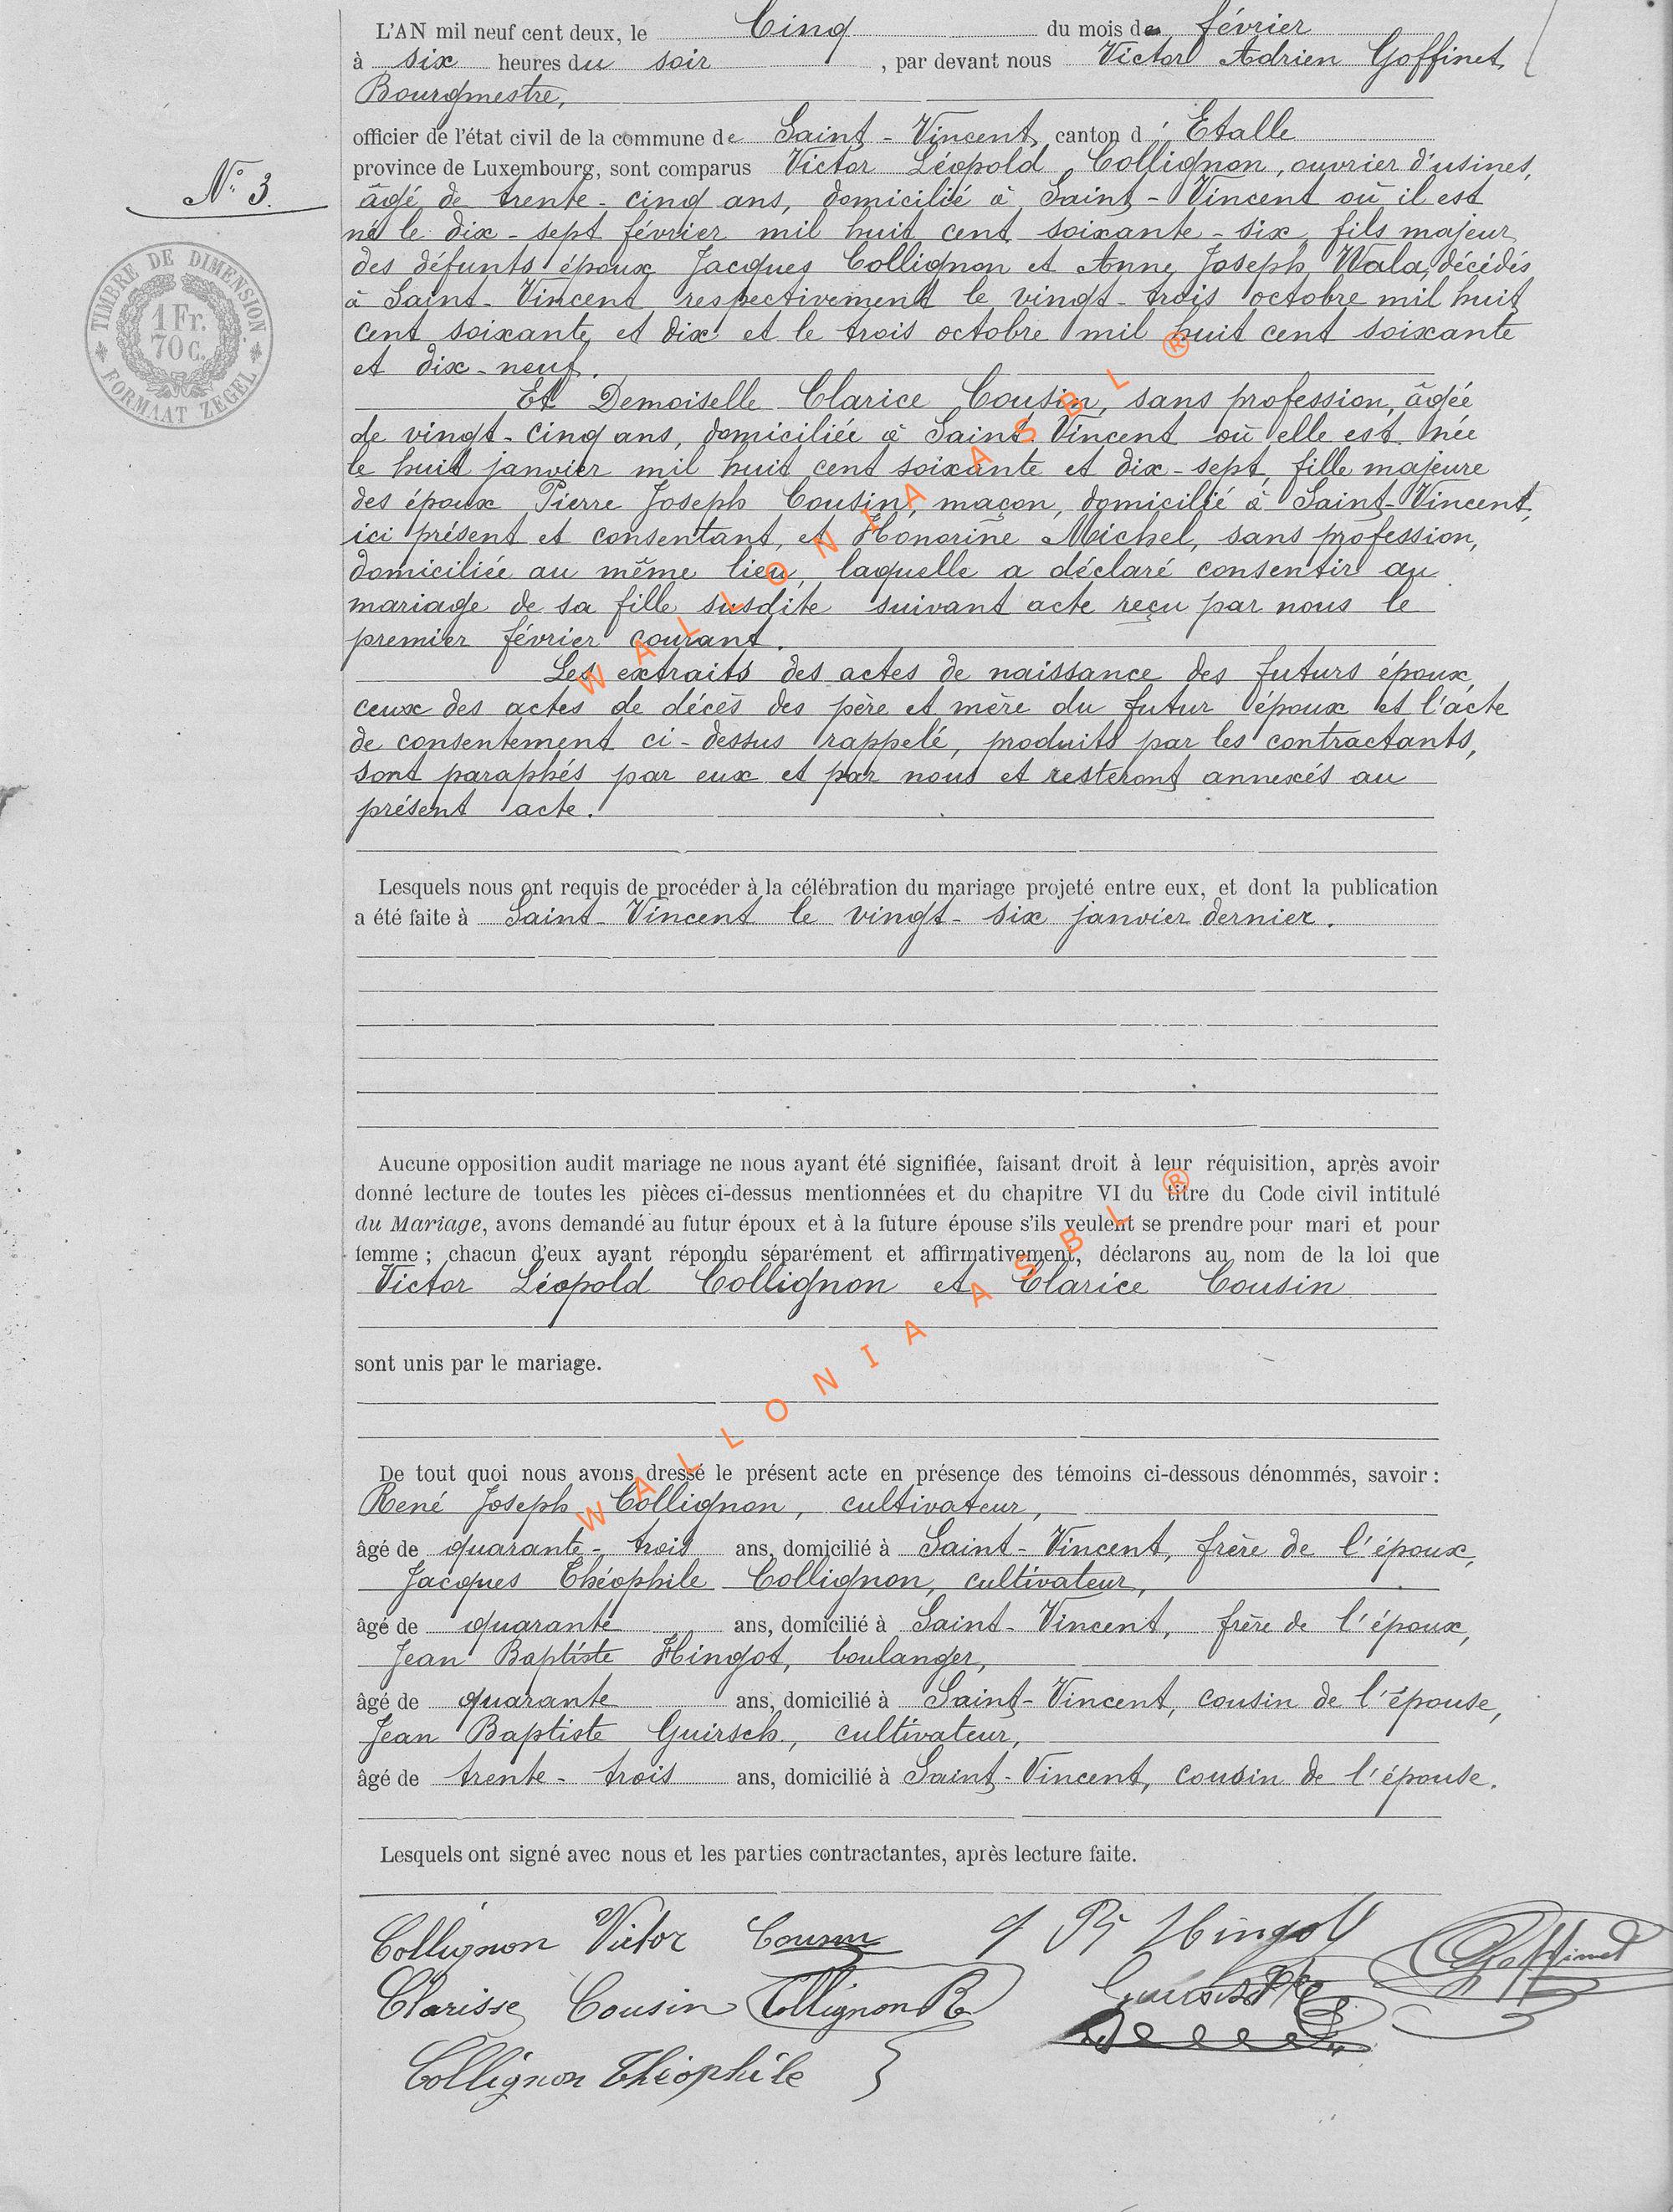 L'AN mil neuf cent deux, le Cinq du mois de février
à six heures du soir, par devant nous Victor Adrien Goffinet,
Bourgmestre,
officier de l'état civil de la commune de Saint-Vincent, canton d'Etalle
province de Luxembourg, sont comparus Victor Léopold Collignon, ouvrier d'usines,
N° 3.
âgé de trente-cinq ans, domicilié à Saint-Vincent où il est
né le dix-sept février mil huit cent soixante-six, fils majeur
des défunts époux Jacques Collignon et Anne Joseph Wala, décédés
à Saint-Vincent respectivement le vingt-trois octobre mil huit
cent soixante et dix et le trois octobre mil huit cent soixante
et dix-neuf.
TIMBRE DE DIMENSION
1 Fr.
70 C.
FORMAAT ZEGEL
Et Demoiselle Clarice Cousin, sans profession, âgée
de vingt-cinq ans, domiciliée à Saint-Vincent où elle est née
le huit janvier mil huit cent soixante et dix-sept, fille majeure
des époux Pierre Joseph Cousin, maçon, domicilié à Saint-Vincent,
ici présent et consentant, et Honorine Michel, sans profession,
domiciliée au même lieu, laquelle a déclaré consentir au
mariage de sa fille susdite suivant acte reçu par nous le
premier février courant.
Les extraits des actes de naissance des futurs époux,
ceux des actes de décès des père et mère du futur époux et l'acte
de consentement ci-dessus rappelé, produits par les contractants,
sont paraphés par eux et par nous et resteront annexés au
présent acte.
WALLONIA ASBL ®
Lesquels nous ont requis de procéder à la célébration du mariage projeté entre eux, et dont la publication
a été faite à Saint-Vincent le vingt-six janvier dernier.
Aucune opposition audit mariage ne nous ayant été signifiée, faisant droit à leur réquisition, après avoir
donné lecture de toutes les pièces ci-dessus mentionnées et du chapitre VI du titre du Code civil intitulé
du Mariage, avons demandé au futur époux et à la future épouse s'ils veulent se prendre pour mari et pour
femme ; chacun d'eux ayant répondu séparément et affirmativement, déclarons au nom de la loi que
Victor Léopold Collignon et Clarice Cousin
sont unis par le mariage.
WALLONIA ASBL ®
De tout quoi nous avons dressé le présent acte en présence des témoins ci-dessous dénommés, savoir :
René Joseph Collignon, cultivateur,
âgé de quarante-trois ans, domicilié à Saint-Vincent, frère de l'époux,
Jacques Théophile Collignon, cultivateur,
âgé de quarante ans, domicilié à Saint-Vincent, frère de l'époux,
Jean Baptiste Hingot, boulanger,
âgé de quarante ans, domicilié à Saint-Vincent, cousin de l'épouse,
Jean Baptiste Guirsch, cultivateur,
âgé de trente-trois ans, domicilié à Saint-Vincent, cousin de l'épouse.
Lesquels ont signé avec nous et les parties contractantes, après lecture faite.
Collignon Victor Cousin Hingot Goffinet
Clarisse Cousin Collignon R
Collignon Théophile